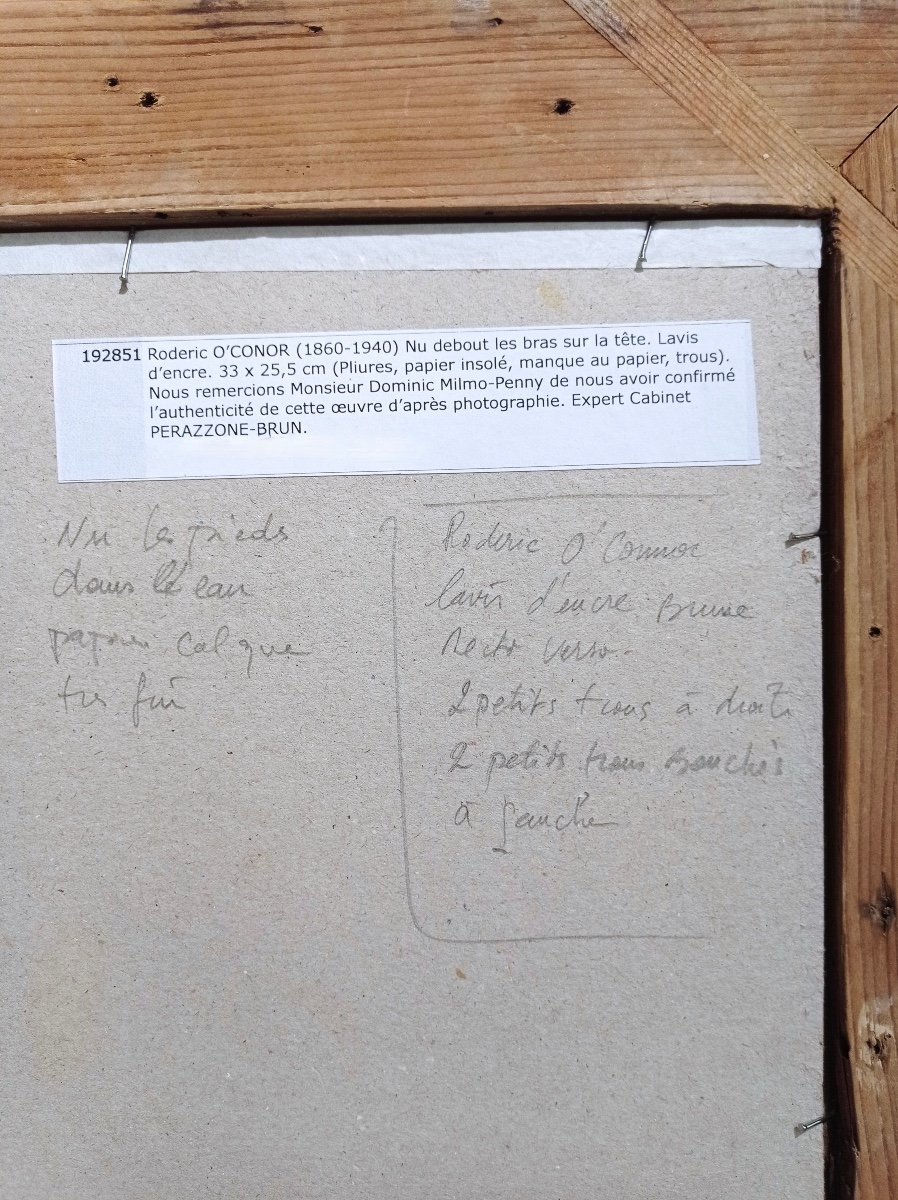 192851 Roderic O’CONOR (1860-1940) Nu debout les bras sur la tête. Lavis
d’encre. 33 x 25,5 cm (Pliures, papier insolé, manque au papier, trous).
Nous remercions Monsieur Dominic Milmo-Penny de nous avoir confirmé
l’authenticité de cette œuvre d’après photographie. Expert Cabinet
PERAZZONE-BRUN.
Nu les pieds
dans l'eau
papier calque
très fin
Roderic O'Connor
lavis d'encre Brune
Recto verso.
2 petits trous à droite
2 petits trous Bouchés
à gauche